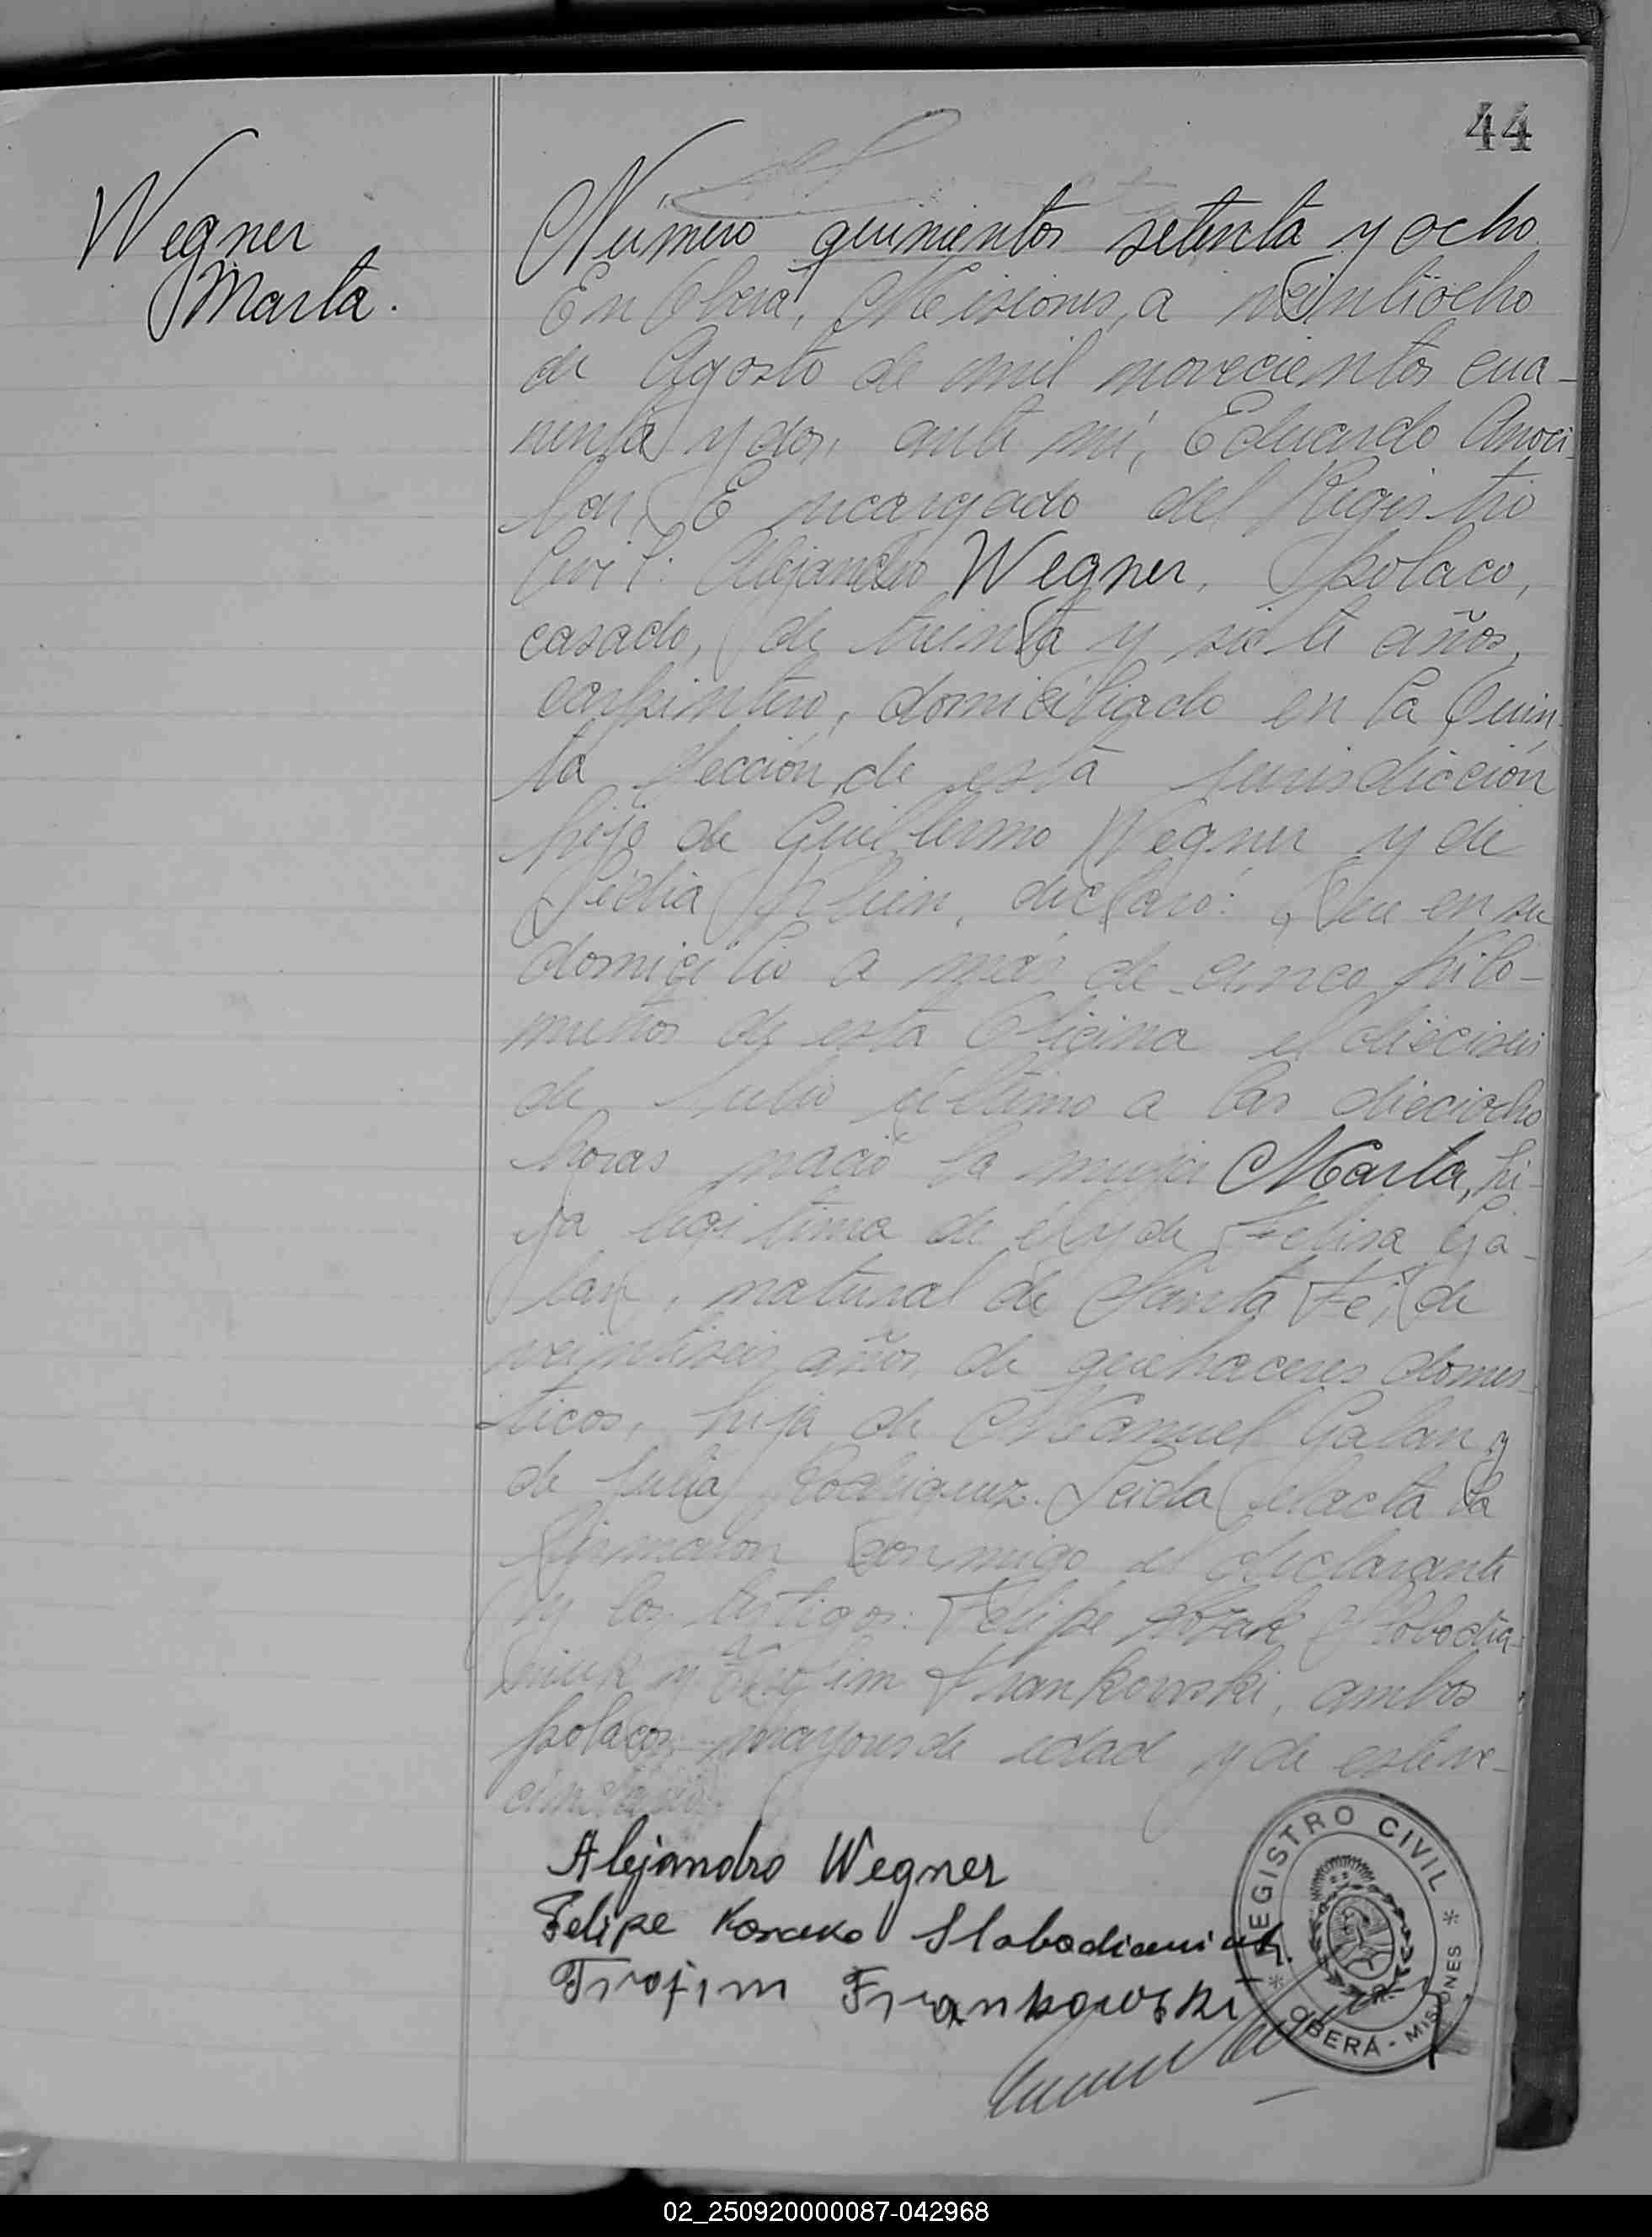 44
Wegner
Marta.
Número quinientos setenta y ocho
En Oberá, Misiones, a veintiocho
de Agosto de mil novecientos cua-
renta y dos, ante mí, Eduardo
Encargado del Registro
Civil: Alejandro Wegner, polaco,
casado, de treinta y siete años,
carpintero, domiciliado en la Quin
ta Sección de esta Jurisdicción
hijo de Guillermo Wegner y de
declaró: Que en su
domicilio a más de cinco kiló-
metros de esta Oficina el dieciseis
de Julio último a las dieciocho
horas nació la mujer Marta, hi-
ja legítima de él y de Felisa Ga-
lan, natural de Santa Fé, de
veintiseis años, de quehaceres domes
ticos, hija de Manuel Galan y
de Julia Rodriguez. Leida el acta la
firmaron conmigo el declarante
y los testigos: Felipe Slobodia-
niuk y Trofim Frankowski, ambos
polacos, mayores de edad y de este ve-
cindario.
Alejandro Wegner
Felipe Slobodianiuk.
Trofim Frankowski
REGISTRO CIVIL
OBERÁ - MISIONES
02_250920000087-042968